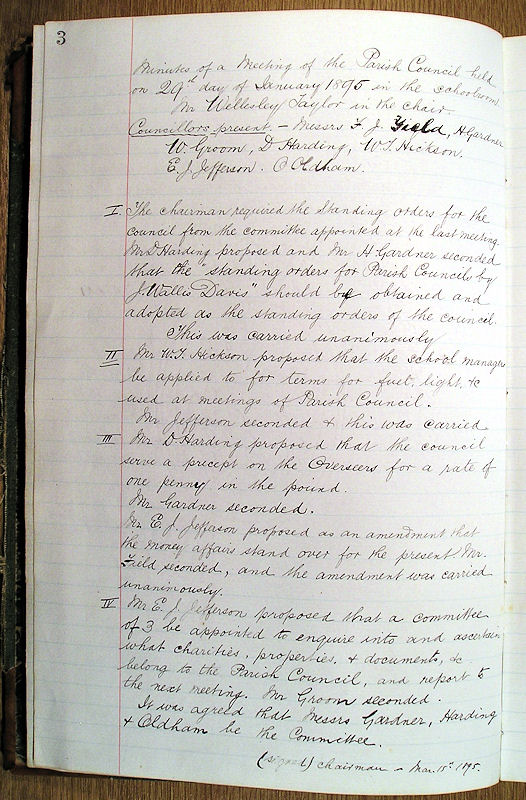 3
Minutes of a Meeting of the Parish Council held
on 29th day of January 1895 in the schoolroom
Mr Wellesley Taylor in the Chair.
Councillors present. – Messrs F. J. Field, H Gardner
W Groom, D Harding, W. T. Hickson.
E. J. Jefferson. C Oldham.
I. The chairman required the Standing orders for the
council from the committee appointed at the last meeting
Mr D Harding proposed and Mr H Gardner seconded
that the "standing orders for Parish Councils by
J. Wallis Davis" should be obtained and
adopted as the standing orders of the council.
This was carried unanimously
II Mr W. T. Hickson proposed that the school managers
be applied to for terms for fuel, light, &c
used at meetings of Parish Council.
Mr Jefferson seconded & this was carried
III Mr D. Harding proposed that the council
serve a precept on the Overseers for a rate of
one penny in the pound.
Mr Gardner seconded.
Mr E. J. Jefferson proposed as an amendment that
the money affairs stand over for the present Mr.
Feild seconded, and the amendment was carried
unanimously.
IV Mr E. J. Jefferson proposed that a committee
of 3 be appointed to enquire into and ascertain
what charities, properties, & documents, &c
belong to the Parish Council, and report to
the next meeting. Mr Groom seconded.
It was agreed that Messrs Gardner, Harding
& Oldham be the Committee.
(signed) Chairman – Mar. 15th 1895.